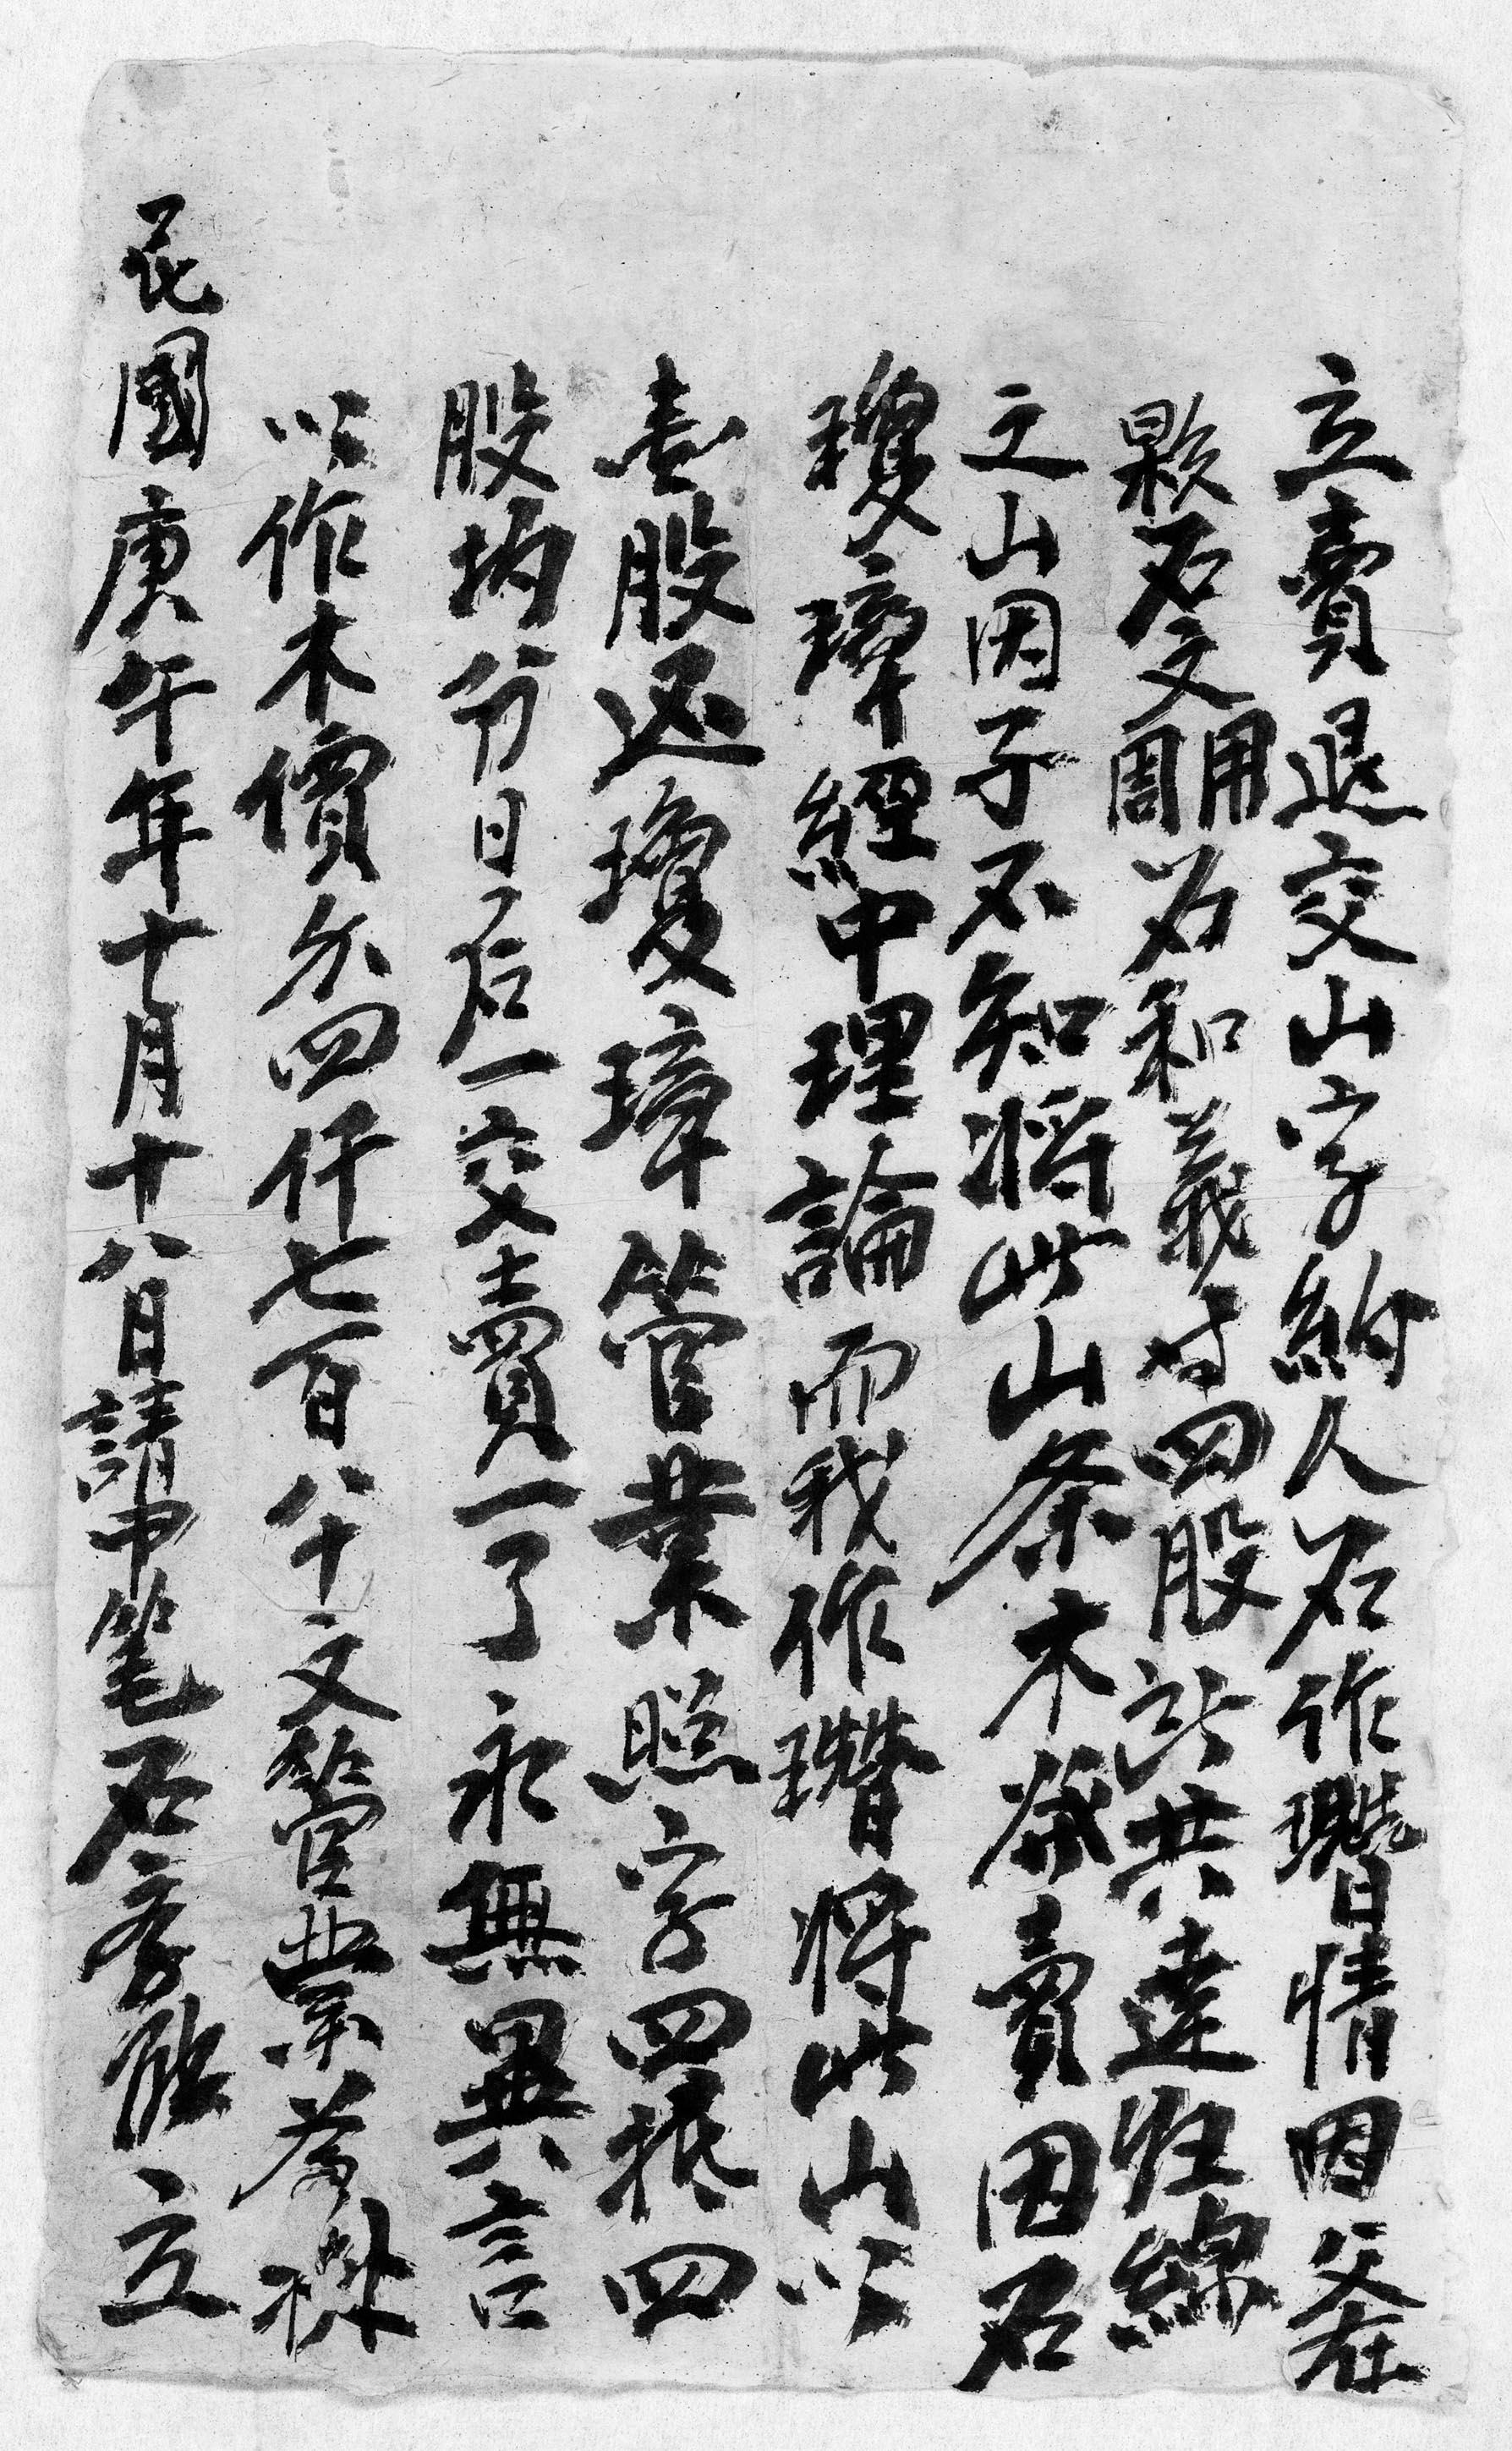 立賣退交山字約人石作瓚情因父在
縣石文用周石和義才四股此共達归綿
之山因子不知將此山条木砍賣因石
瓊璋經中理論而我作瓚將此山以
壹股還瓊璋管業照字四抵四
股均分日后一交賣一了永無異言
以作木價分四仟七百八十文管業為
民國庚午年十月十八日請中筆石彥能立